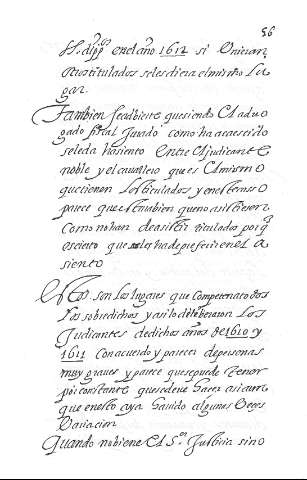 56
en el año 1612 si
titulados seles diera el mismo Lu
gar.
Tambien se advierte que siendo El abo
gado fiscal Jurado como ha acaescido
seleda Asiento entre El Judicante
noble y el cavallero que es El mismo
que tienen Los titulados y en el braso
parece que tambien
como no han de asistir titulados porq
es cierto que seles ha de preferir en el A
siento
Estos son Los lugares que Competen a todos
Los sobredichos y asi lo deliberaron Los
Judicantes de dichos años de 1610 y
1611 Con acuerdo y parecer de personas
muy graves y parece que se puede tener
por constante que se deve hacer asi aun
que en esto aya havido algunas Veces
Variacion
Quando no biene El S.or Justicia sino